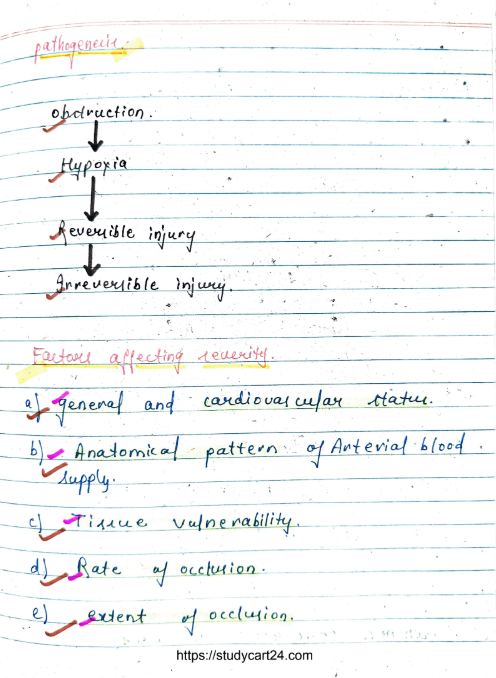 pathogenesis.
obstruction.
Hypoxia
Reversible injury
Irreversible injury.
Factors affecting severity.
a) general and cardiovascular status.
b) Anatomical pattern of Arterial blood
supply.
c) Tissue vulnerability.
d) Rate of occlusion.
e) extent of occlusion.
https://studycart24.com